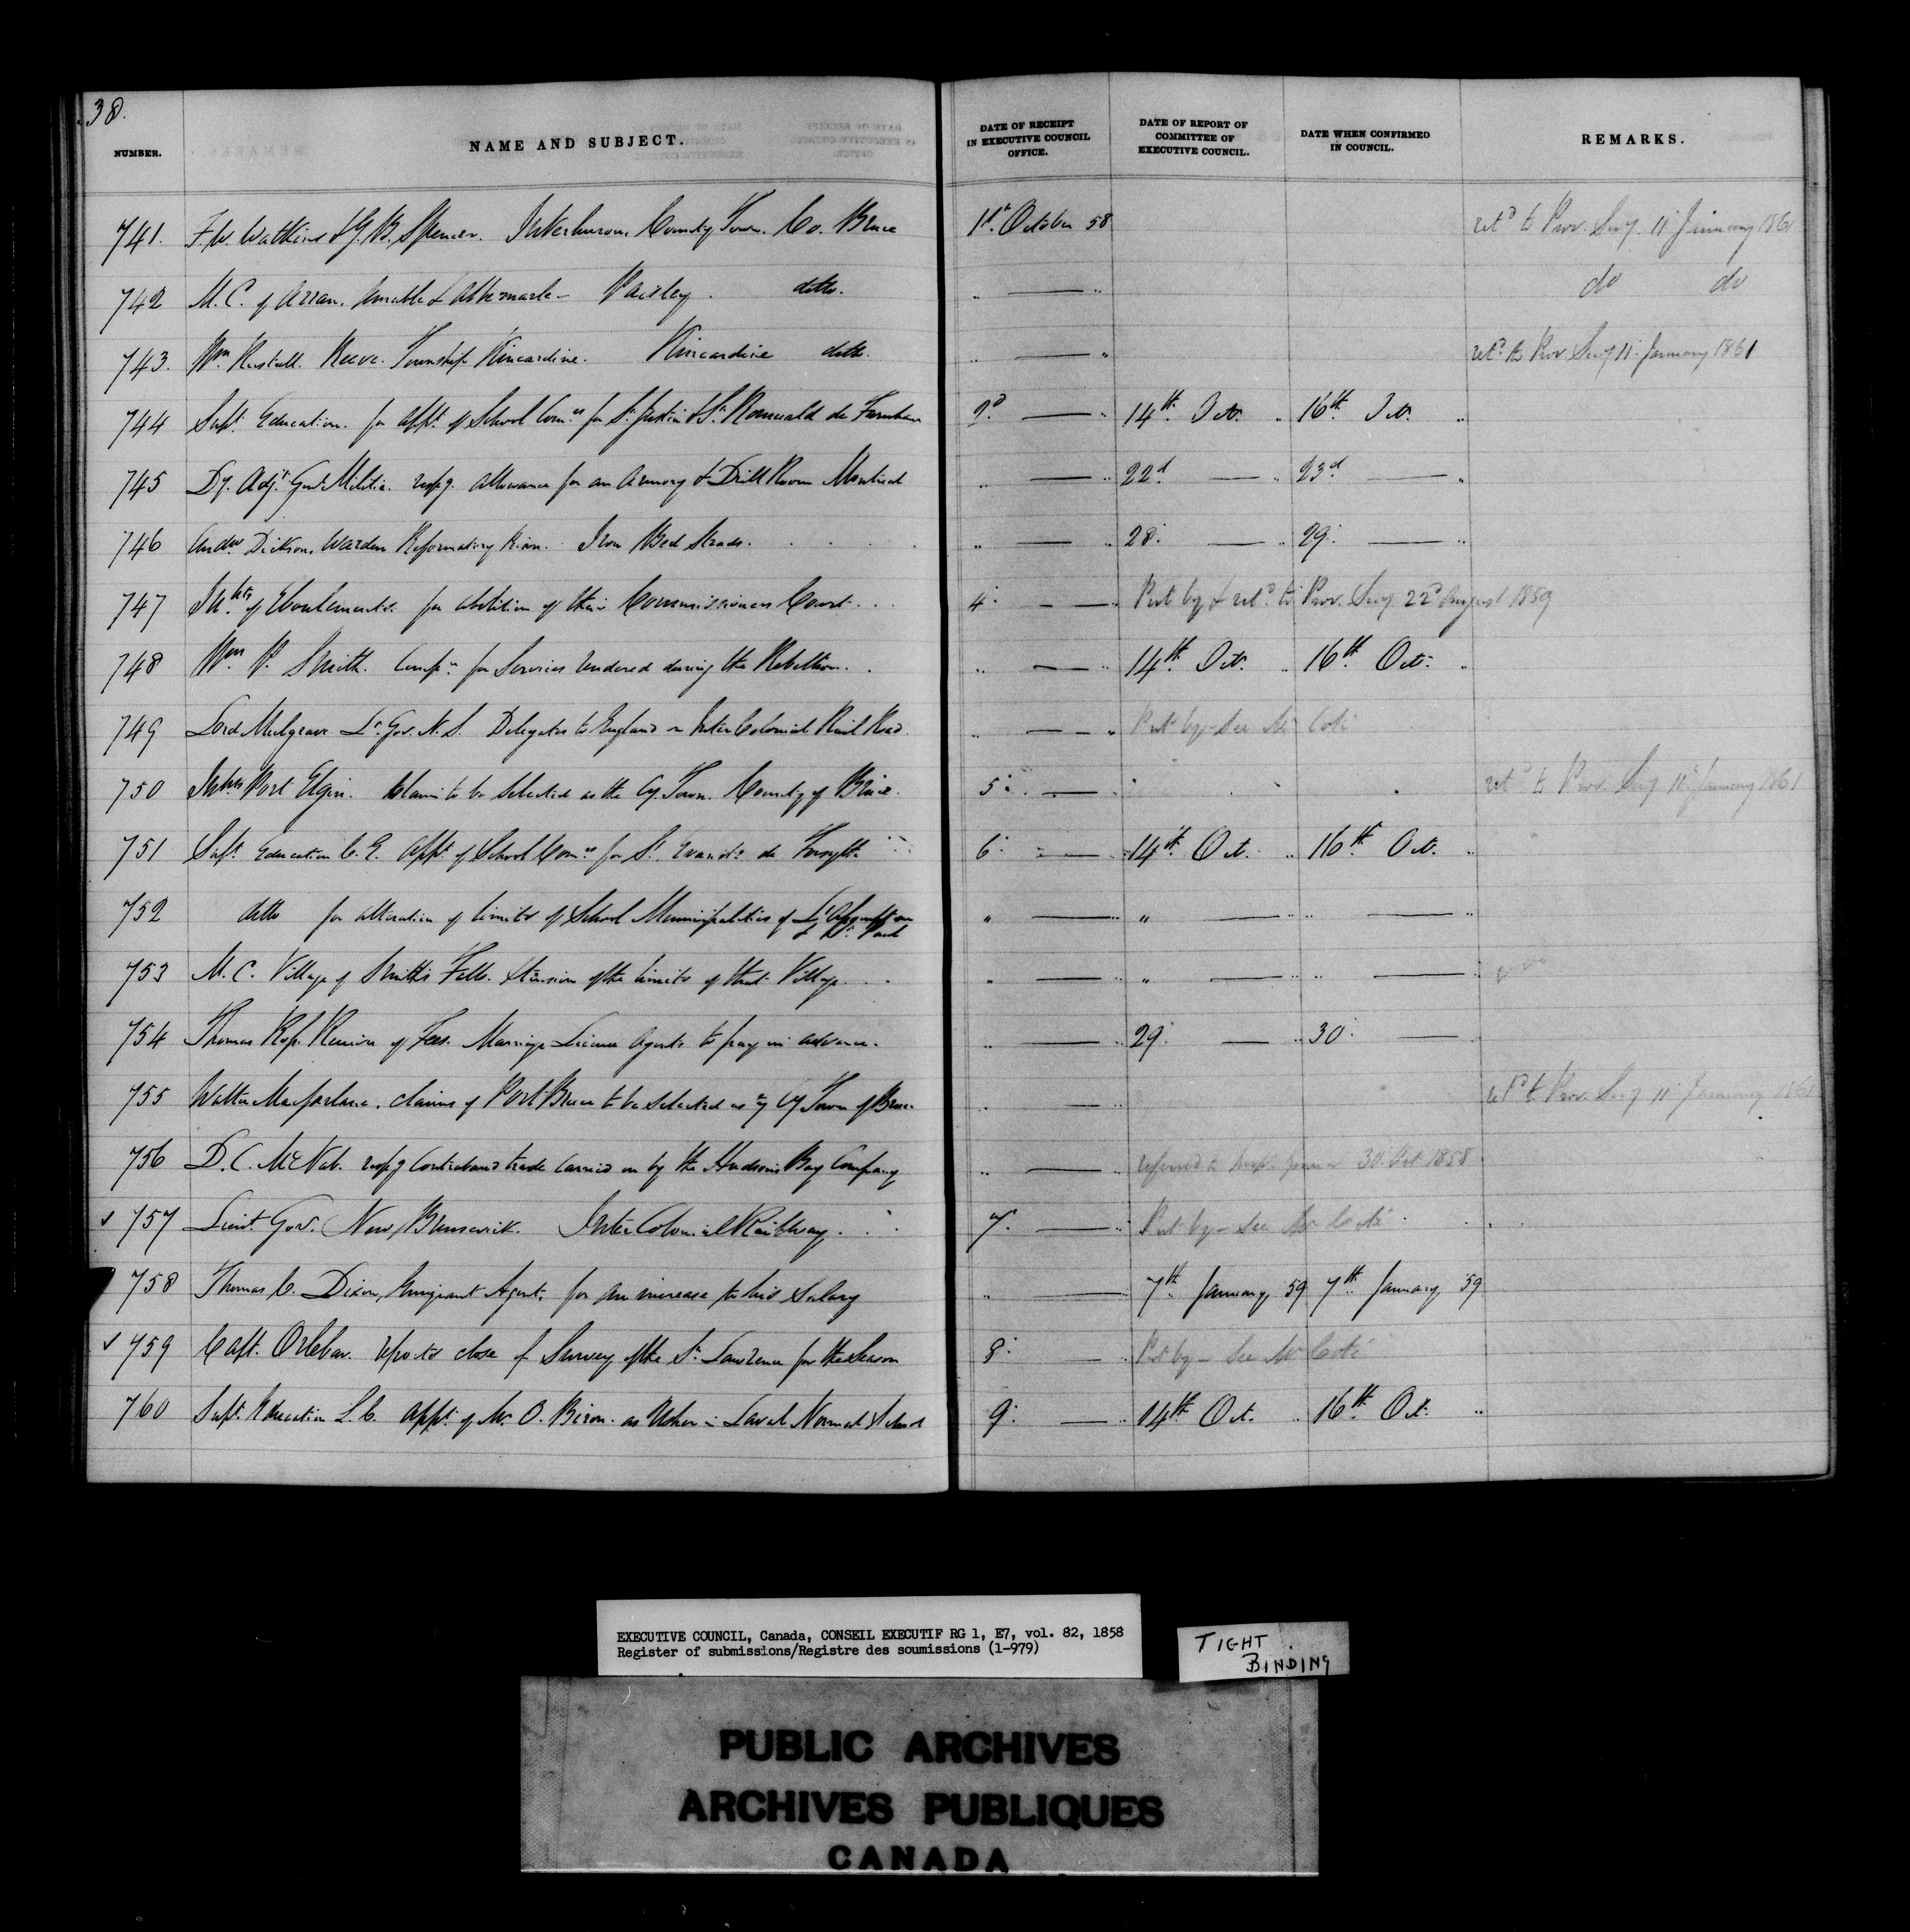 38.
NUMBER. NAME AND SUBJECT. DATE OF RECEIPT IN EXECUTIVE COUNCIL OFFICE. DATE OF REPORT OF COMMITTEE OF EXECUTIVE COUNCIL. DATE WHEN CONFIRMED IN COUNCIL. REMARKS.
741. F. W. Watkins & G. B. Spencer. Inverhuron, County Town. Co. Bruce 1st October 58 retd to Prov. Secy. 11 January 1861
742 M. C. of Arran, Amable & Albemarle - Paisley. ditto. " — " do do
743. Wm Rastall. Reeve. Township Kincardine. Kincardine ditto. " — " retd to Prov Secy 11 January 1861
744 Supt. Education. for appt. of School Comrs for St. Justin & St. Romuald de Farnham 2d — " 14th Oct. " 16th Oct. "
745 Dy. Adjt. Genl Militia. respg. allowance for an Armory & Drill Room Montreal " — " 22d — " 23d — "
746 Andw Dickson, Warden Reformatory Prison. Iron Bed Steads. " — " 28. — " 29. — "
747 Inhts of Eboulements. for abolition of their Commissioners Court. 4. — " Put by & retd to Prov. Secy 22d August 1859
748 Wm P. Smith. Compn for Services rendered during the Rebellion. " — " 14th Oct. " 16th Oct. "
749 Lord Mulgrave Lt. Gov. N. S. Delegates to England Inter Colonial Rail Road. " — " Put by - See Mr Coté
750 Inhts Port Elgin. Claim to be selected as the Cy. Town. County of Bruce. 5. — " retd to Prov. Secy 11 January 1861
751 Supt. Education C. E. appt. of School Comrs for St. Evariste de Forsyth 6. — " 14th Oct. " 16th Oct. "
752 ditto for alteration of limits of School Municipalities of L'Assomption & St. Paul " — " — " — "
753 M. C. Village of Smith's Falls. Extension of the limits of that Village. " — " " — " " — "
754 Thomas Ross. Receiver of Fees. Marriage License Agents to pay in advance. " — " 29. — " 30. — "
755 Walter Macfarlane. claims of Port Bruce to be selected as ye Cy Town of Bruce " — " retd to Prov. Secy 11 January 1861
756 D. C. McNab. respg Contraband trade carried on by the Hudson's Bay Company " — " referred to 30. Oct 1858
757 Lieut. Gov. New Brunswick. Inter Colonial Railway. 7. — " Put by - See Mr Coté
758 Thomas C. Dixon, Emigrant Agent. for an increase to his Salary " — 7th January, 59 7th January, 59
759 Capt. Orlebar. reports close of Survey of the St. Lawrence for the Season 8. — " Put by - See Mr Coté
760 Supt. Education L. C. appt. of Mr. O. Biron. as Usher in Laval Normal School 9. — " 14th Oct. " 16th Oct. "
EXECUTIVE COUNCIL, Canada, CONSEIL EXECUTIF RG 1, E7, vol. 82, 1858
Register of submissions/Registre des soumissions (1-979)
TIGHT BINDING
PUBLIC ARCHIVES
ARCHIVES PUBLIQUES
CANADA